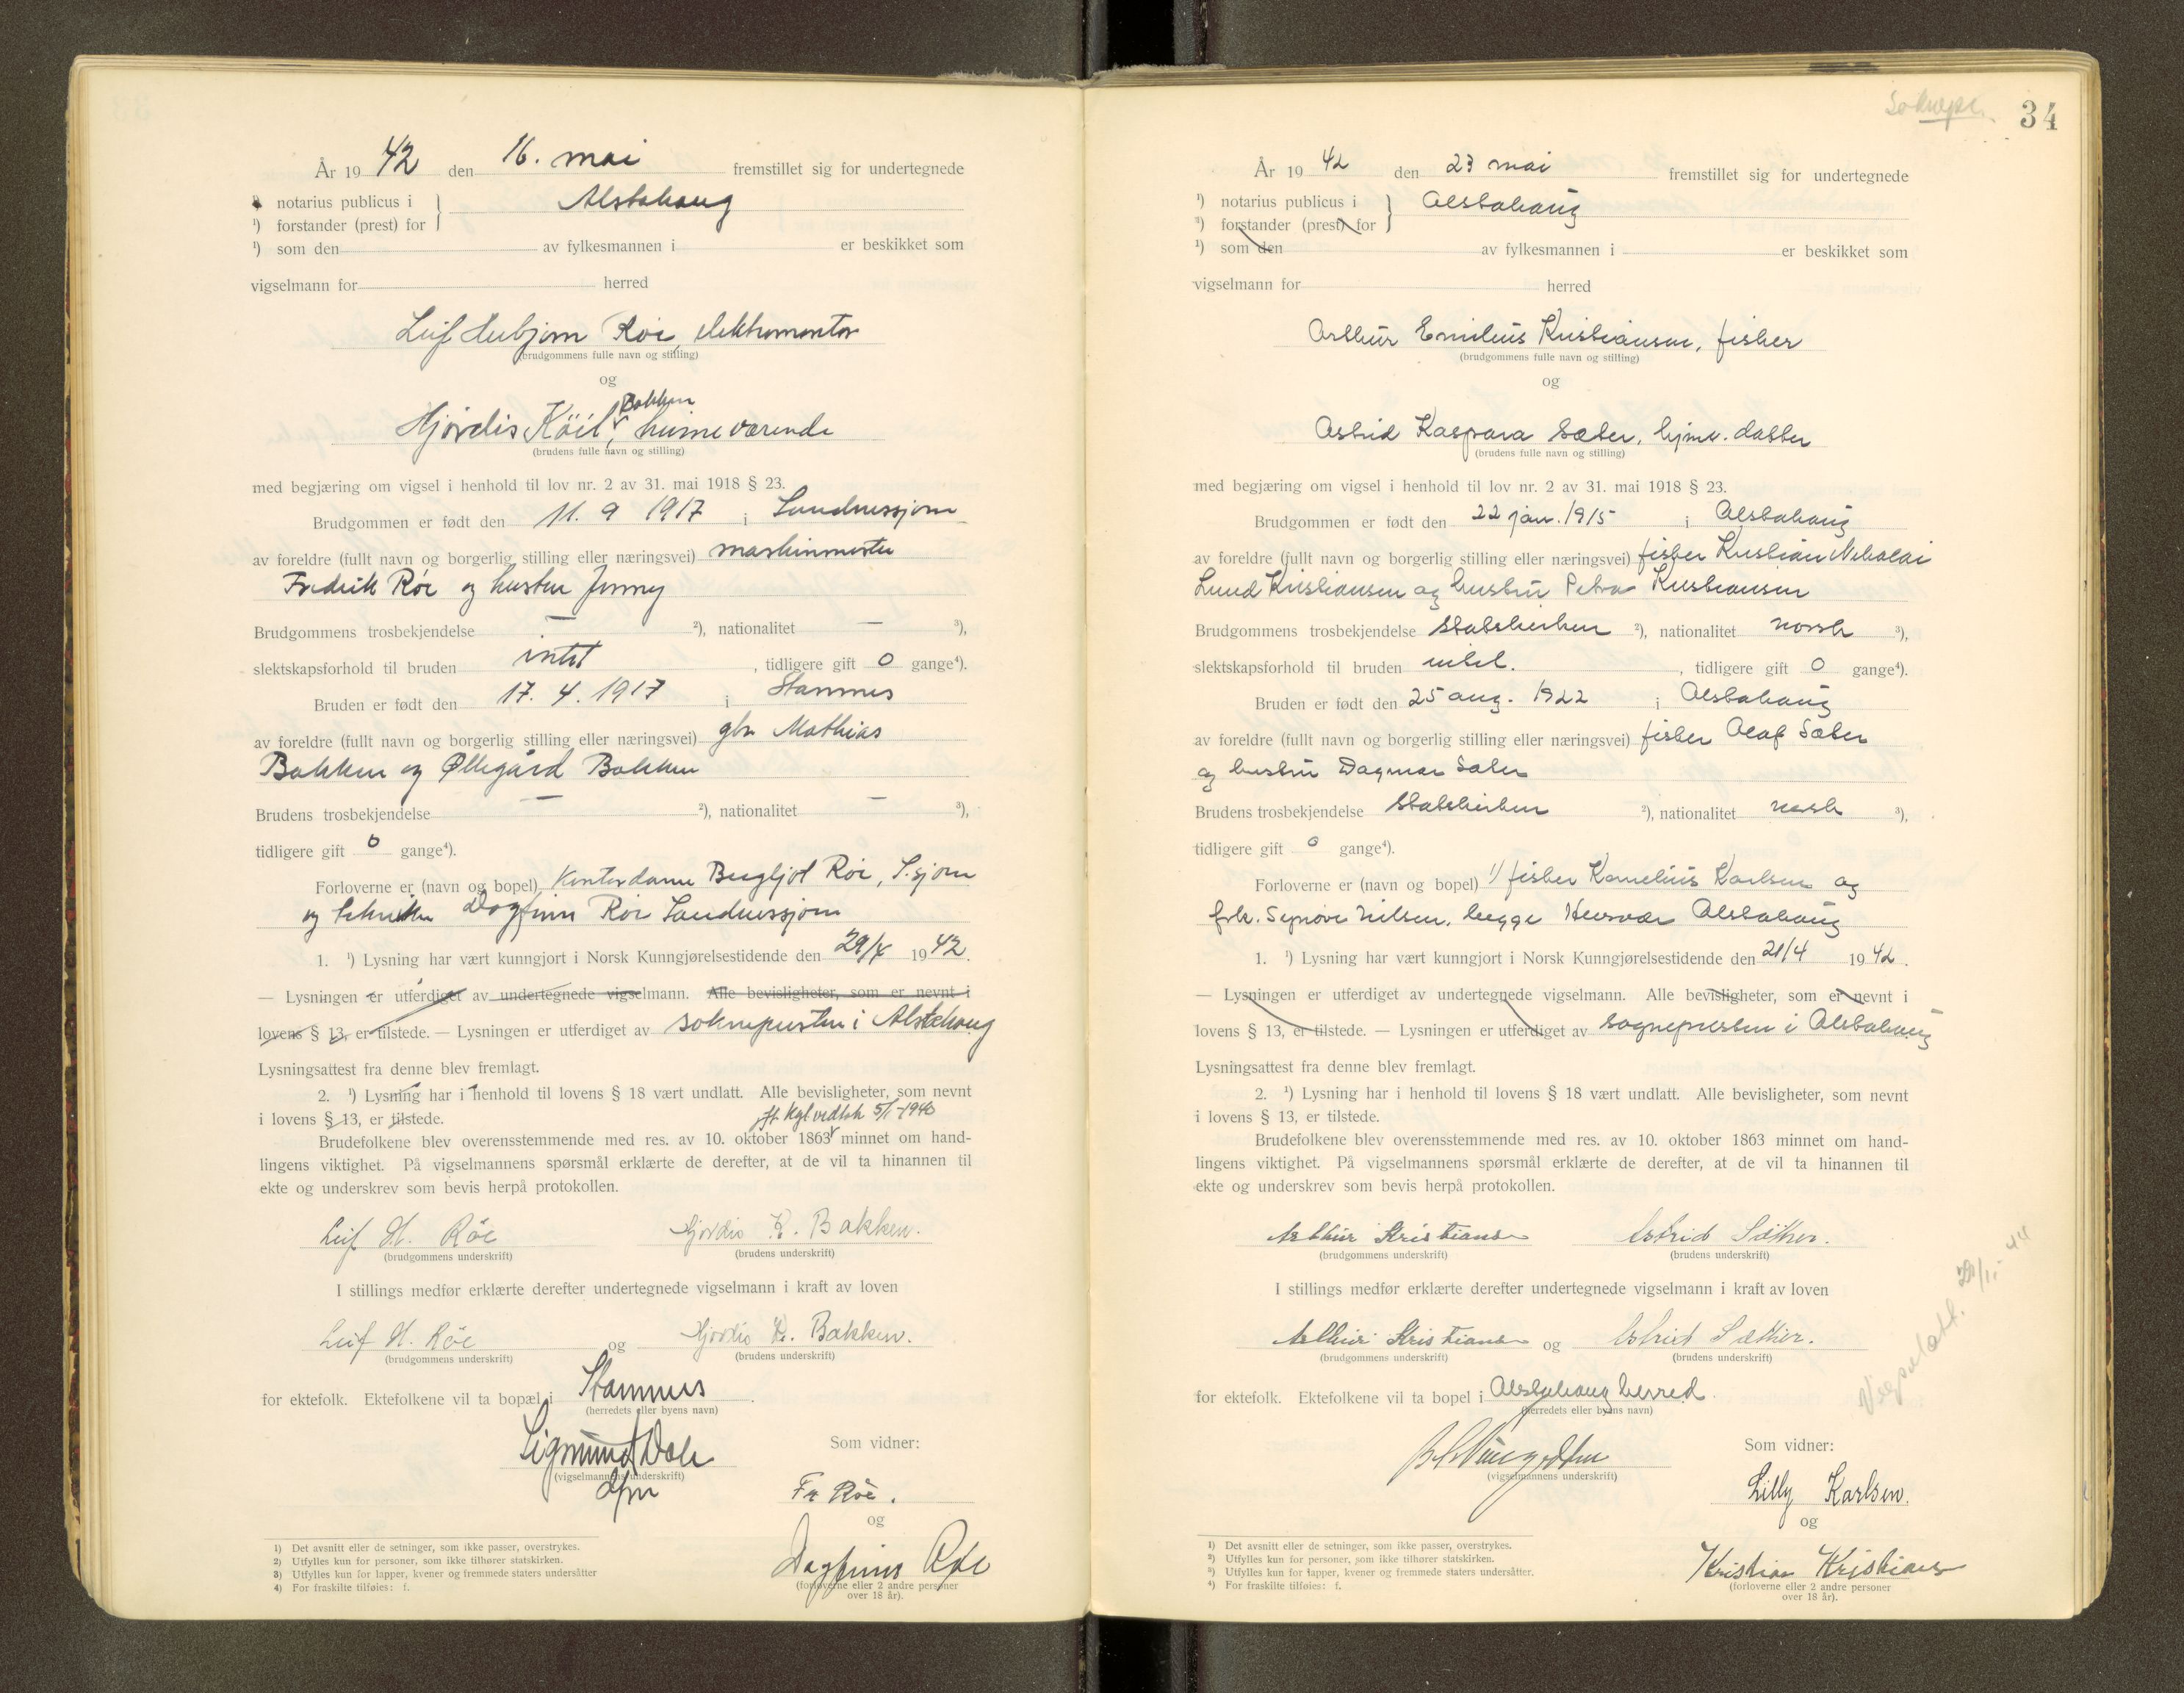 År 19 42 den 16. mai fremstillet sig for undertegnede
¹) notarius publicus i } Alstahaug
¹) forstander (prest) for
¹) som den av fylkesmannen i er beskikket som
vigselmann for herred
Leif Røe, elektromontør
(brudgommens fulle navn og stilling)
og
Bakken
Hjørdis heimeværende
(brudens fulle navn og stilling)
med begjæring om vigsel i henhold til lov nr. 2 av 31. mai 1918 § 23.
Brudgommen er født den 11. 9 1917 i Sandnessjøen
av foreldre (fullt navn og borgerlig stilling eller næringsvei) maskinmester
Fredrik Røe og hustru Jenny
Brudgommens trosbekjendelse — ²), nationalitet — ³),
slektskapsforhold til bruden intet , tidligere gift 0 gange⁴).
Bruden er født den 17. 4. 1917 i Stamnes
av foreldre (fullt navn og borgerlig stilling eller næringsvei) gbr Mathias
Bakken og Øllegård Bakken
Brudens trosbekjendelse — ²), nationalitet — ³),
tidligere gift 0 gange⁴).
Forloverne er (navn og bopel) Kontordame Bergljot Røe, S.sjøen
og tekniker Dagfinn Røe Sandnessjøen
1. ¹) Lysning har vært kunngjort i Norsk Kunngjørelsestidende den 29/4 1942.
— Lysningen er utferdiget av undertegnede vigselmann. Alle bevisligheter, som er nevnt i
lovens § 13, er tilstede. — Lysningen er utferdiget av soknepresten i Alstahaug
Lysningsattest fra denne blev fremlagt.
2. ¹) Lysning har i henhold til lovens § 18 vært undlatt. Alle bevisligheter, som nevnt
i lovens § 13, er tilstede. jf. kgl vedtak 5/1-1940
Brudefolkene blev overensstemmende med res. av 10. oktober 1863 minnet om hand-
lingens viktighet. På vigselmannens spørsmål erklærte de derefter, at de vil ta hinannen til
ekte og underskrev som bevis herpå protokollen.
Leif H. Røe Hjørdis K. Bakken.
(brudgommens underskrift) (brudens underskrift)
I stillings medfør erklærte derefter undertegnede vigselmann i kraft av loven
Leif H. Røe og Hjørdis K. Bakken.
(brudgommens underskrift) (brudens underskrift)
for ektefolk. Ektefolkene vil ta bopæl i Stamnes.
(herredets eller byens navn)
Sigmund Dale
(vigselmannens underskrift)
Som vidner:
Fr Røe.
og
Dagfinn Røe
(forloverne eller 2 andre personer
over 18 år).
1) Det avsnitt eller de setninger, som ikke passer, overstrykes.
2) Utfylles kun for personer, som ikke tilhører statskirken.
3) Utfylles kun for lapper, kvener og fremmede staters undersåtter
4) For fraskilte tilføies: f.
Soknepr. 34
År 19 42 den 23 mai fremstillet sig for undertegnede
¹) notarius publicus i } Alstahaug
¹) forstander (prest) for
¹) som den av fylkesmannen i er beskikket som
vigselmann for herred
Arthur Emilius Kristiansen, fisker
(brudgommens fulle navn og stilling)
og
Astrid Kaspara Sæter, hjmv. datter
(brudens fulle navn og stilling)
med begjæring om vigsel i henhold til lov nr. 2 av 31. mai 1918 § 23.
Brudgommen er født den 22 jan. 1915 i Alstahaug
av foreldre (fullt navn og borgerlig stilling eller næringsvei) fisker Kristian Nikolai
Lund Kristiansen og hustru Petra Kristiansen
Brudgommens trosbekjendelse statskirken ²), nationalitet norsk ³),
slektskapsforhold til bruden intet. , tidligere gift 0 gange⁴).
Bruden er født den 25 aug. 1922 i Alstahaug
av foreldre (fullt navn og borgerlig stilling eller næringsvei) fisker Olaf Sæter
og hustru Dagmar Sæter
Brudens trosbekjendelse statskirken ²), nationalitet norsk ³),
tidligere gift 0 gange⁴).
Forloverne er (navn og bopel) 1/ fisker Kornelius Karlsen og
frk. Synøve Nilsen, begge Husvær Alstahaug
1. ¹) Lysning har vært kunngjort i Norsk Kunngjørelsestidende den 21/4 1942.
— Lysningen er utferdiget av undertegnede vigselmann. Alle bevisligheter, som er nevnt i
lovens § 13, er tilstede. — Lysningen er utferdiget av sognepresten i Alstahaug
Lysningsattest fra denne blev fremlagt.
2. ¹) Lysning har i henhold til lovens § 18 vært undlatt. Alle bevisligheter, som nevnt
i lovens § 13, er tilstede.
Brudefolkene blev overensstemmende med res. av 10. oktober 1863 minnet om hand-
lingens viktighet. På vigselmannens spørsmål erklærte de derefter, at de vil ta hinannen til
ekte og underskrev som bevis herpå protokollen.
Arthur Kristiansen Astrid Sæther.
(brudgommens underskrift) (brudens underskrift)
I stillings medfør erklærte derefter undertegnede vigselmann i kraft av loven
Arthur Kristiansen og Astrid Sæther.
(brudgommens underskrift) (brudens underskrift)
for ektefolk. Ektefolkene vil ta bopel i Alstahaug herred.
(herredets eller byens navn)
(vigselmannens underskrift)
Som vidner:
Lilly Karlsen.
og
Kristian Kristians
(forloverne eller 2 andre personer
over 18 år).
Vigselatt.
¹) Det avsnitt eller de setninger, som ikke passer, overstrykes.
²) Utfylles kun for personer, som ikke tilhører statskirken.
³) Utfylles kun for lapper, kvener og fremmede staters undersåtter.
⁴) For fraskilte tilføies: f.